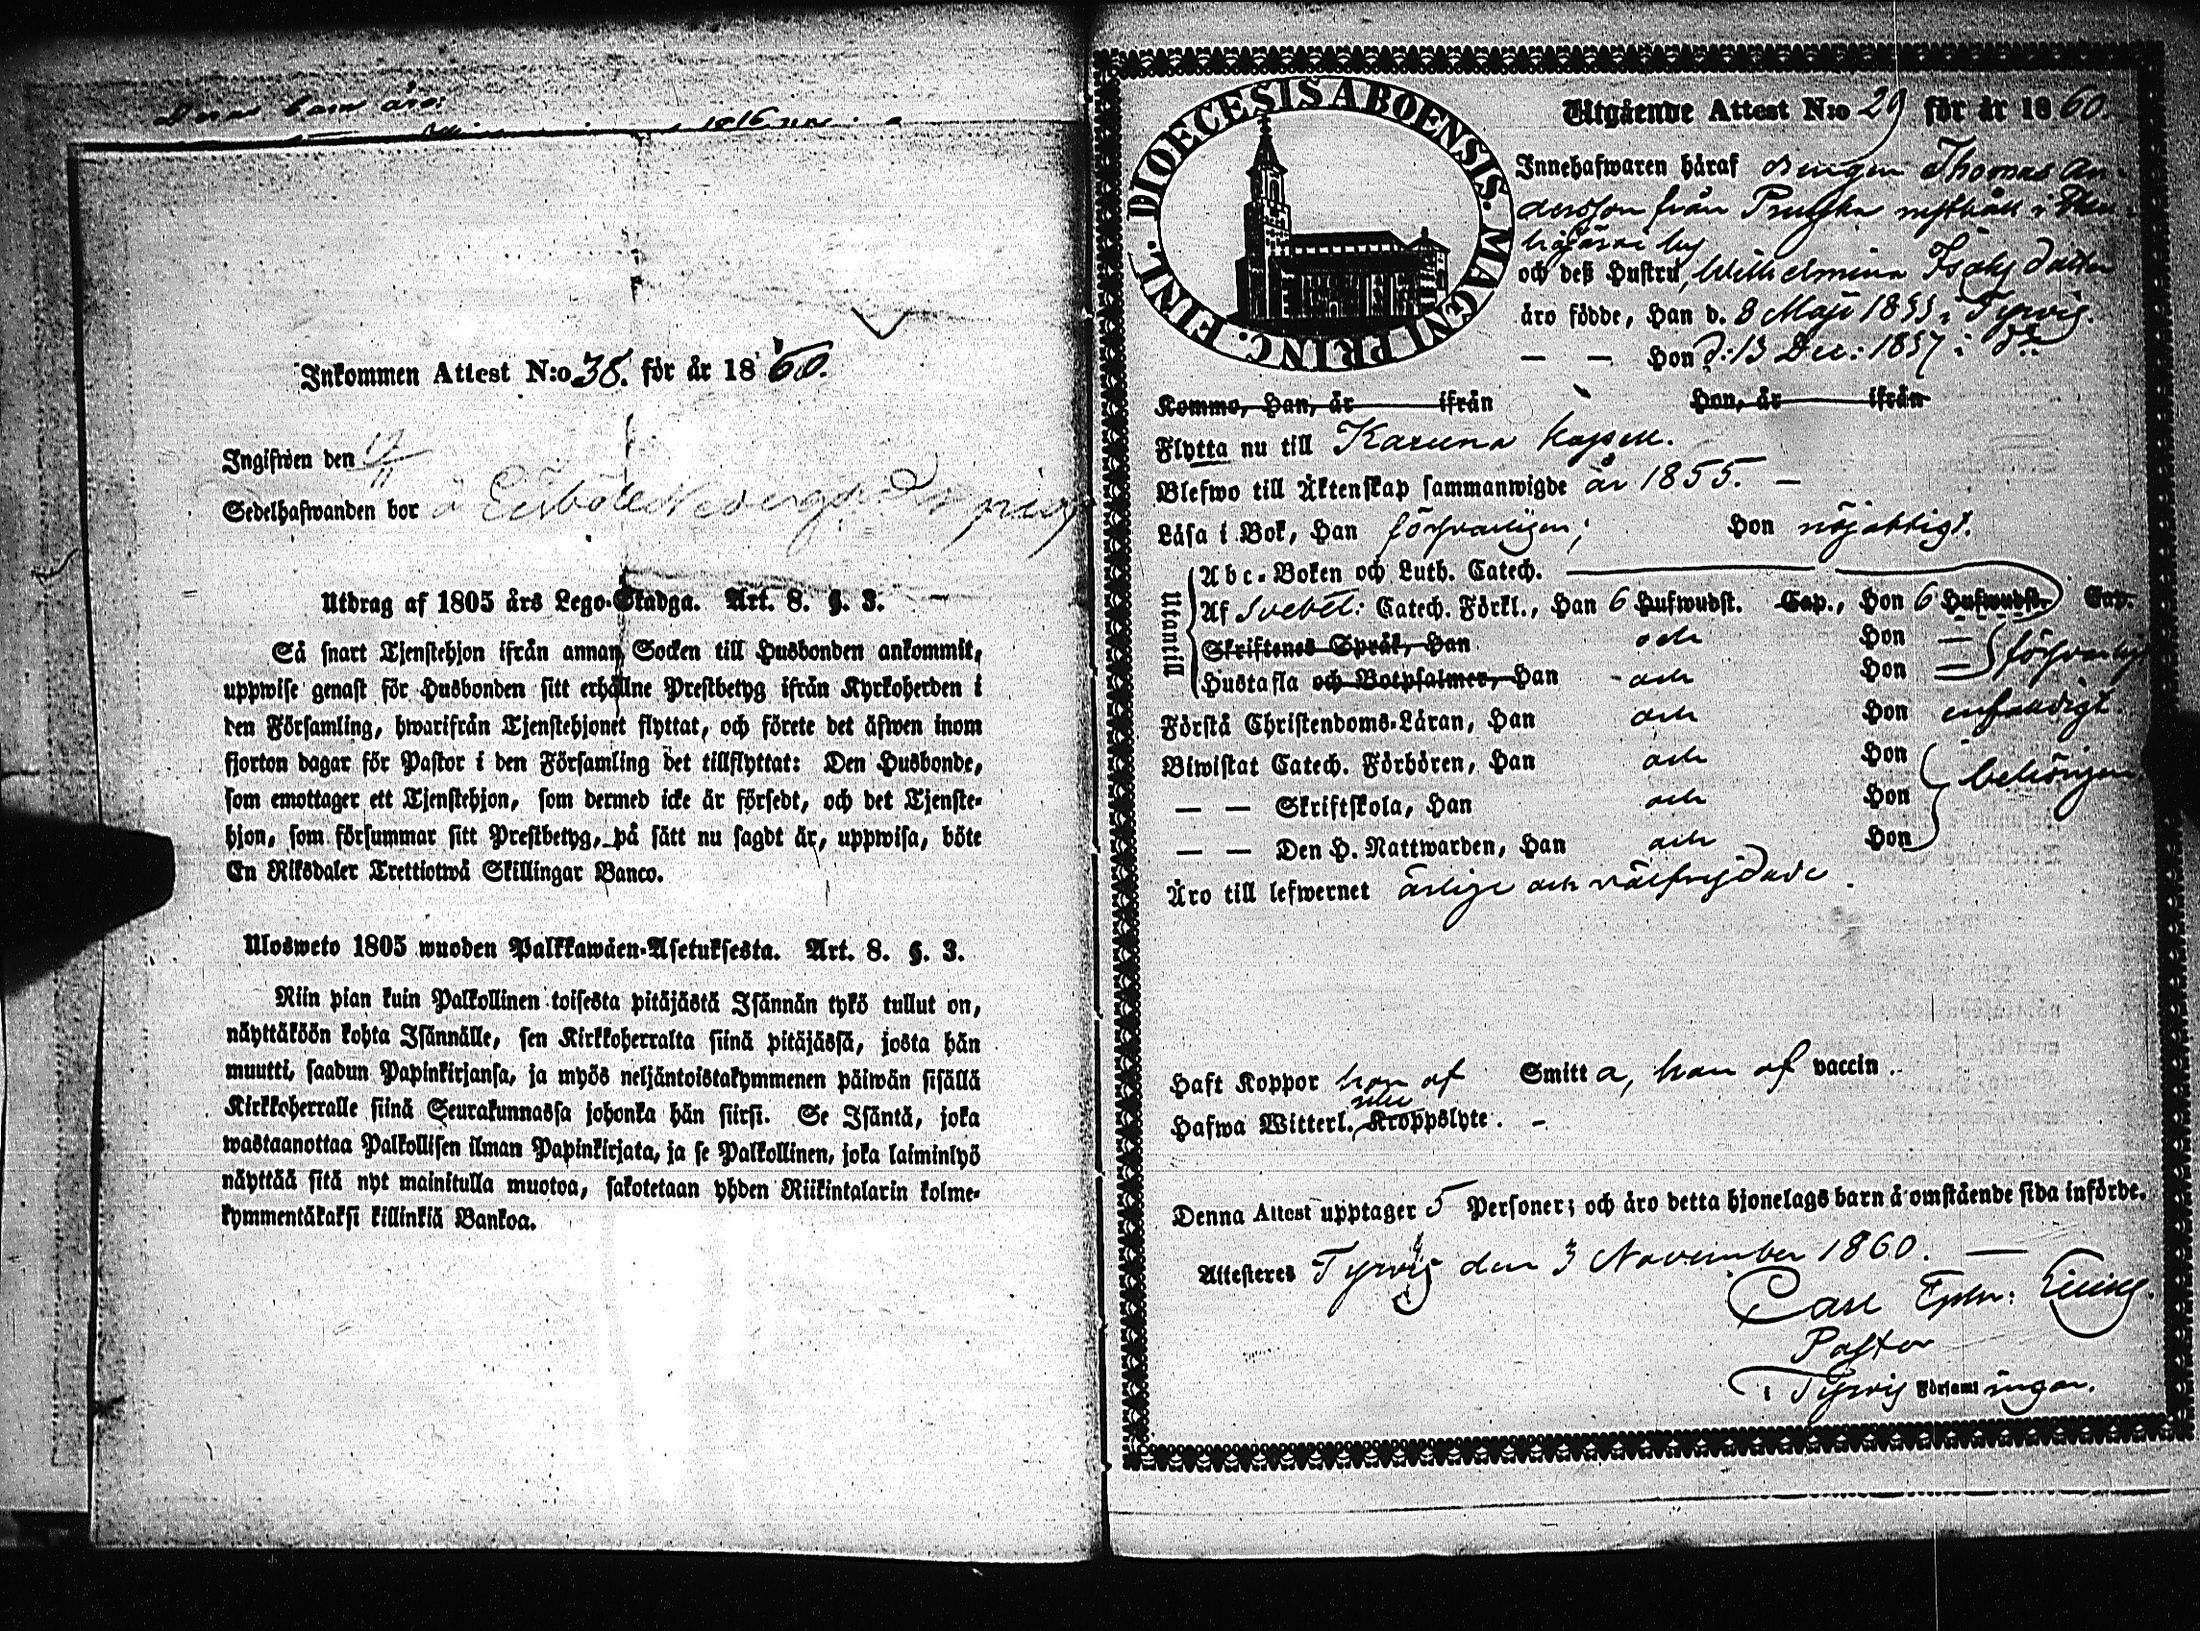 Deras barn äro:
Inkommen Attest N:o 38. för år 1860.
Ingifwen den 17/11
Sedelhafwanden bor å
Utdrag af 1805 års Lego-Stadga. Art. 8. §. 3.
Så snart Tjenstehjon ifrån annan Socken till Husbonden ankommit,
uppwise genast för Husbonden sitt erhållne Prestbetyg ifrån Kyrkoherden i
den Församling, hwarifrån Tjenstehjonet flyttat, och förete det äfwen inom
fjorton dagar för Pastor i den Församling det tillflyttat: Den Husbonde,
som emottager ett Tjenstehjon, som dermed icke är försedt, och det Tjenste-
hjon, som försummar sitt Prestbetyg, på sätt nu sagdt är, uppwisa, böte
En Riksdaler Trettiotwå Skillingar Banco.
Ulosweto 1805 wuoden Palkkawäen-Asetuksesta. Art. 8. §. 3.
Niin pian kuin Palkollinen toisesta pitäjästä Isännän tykö tullut on,
näyttäköön kohta Isännälle, sen Kirkkoherralta siinä pitäjässä, josta hän
muutti, saadun Papinkirjansa, ja myös neljäntoistakymmenen päiwän sisällä
Kirkkoherralle siinä Seurakunnassa johonka hän siirsi. Se Isäntä, joka
wastaanottaa Palkollisen ilman Papinkirjata, ja se Palkollinen, joka laiminlyö
näyttää sitä nyt mainitulla muotoa, sakotetaan yhden Riikintalarin kolme-
kymmentäkaksi killinkiä Bankoa.
FINL. DIOECESIS ABOENSIS. MAGNI PRINC.
Utgående Attest N:o 29 för år 1860.
Innehafwaren häraf Drengen Thomas An-
dersson från rusthåll i
by
och deß Hustru, Wilhelmina Isaksdotter
äro födde, Han d. 8 Maji 1833 i Tyrvis.
— — Hon d: 13 Dec: 1837 i do
Kommo, Han, år ifrån Hon, år ifrån
Flytta nu till Karuna kapell.
Blefwo till Äktenskap sammanwigde år 1855. —
Läsa i Bok, Han försvarligen; Hon nöjaktigt.
Utantill
Abc-Boken och Luth. Catech.
Af Svebel: Catech. Förkl., Han 6 Hufwudst. Cap., Hon 6 Hufwudst. Cap.
Skriftenes Språk, Han och Hon —
Hustafla och Botpsalmer, Han och Hon — försvarligt
Förstå Christendoms-Läran, Han och Hon enfaldigt.
Biwistat Catech. Förhören, Han och Hon
— — Skriftskola, Han och Hon behörigen
— — Den H. Nattwarden, Han och Hon
Äro till lefwernet ärlige och välfrejdade.
Haft Koppor hon af Smitta, han af vaccin.
Hafwa Witterl. Kroppslyte. -
Denna Attest upptager 5 Personer; och äro detta hjonelags barn å omstående sida införde.
Attesteres Tyrvis den 3 November 1860. —
Carl
Pastor
i Tyrvis Församlingar.